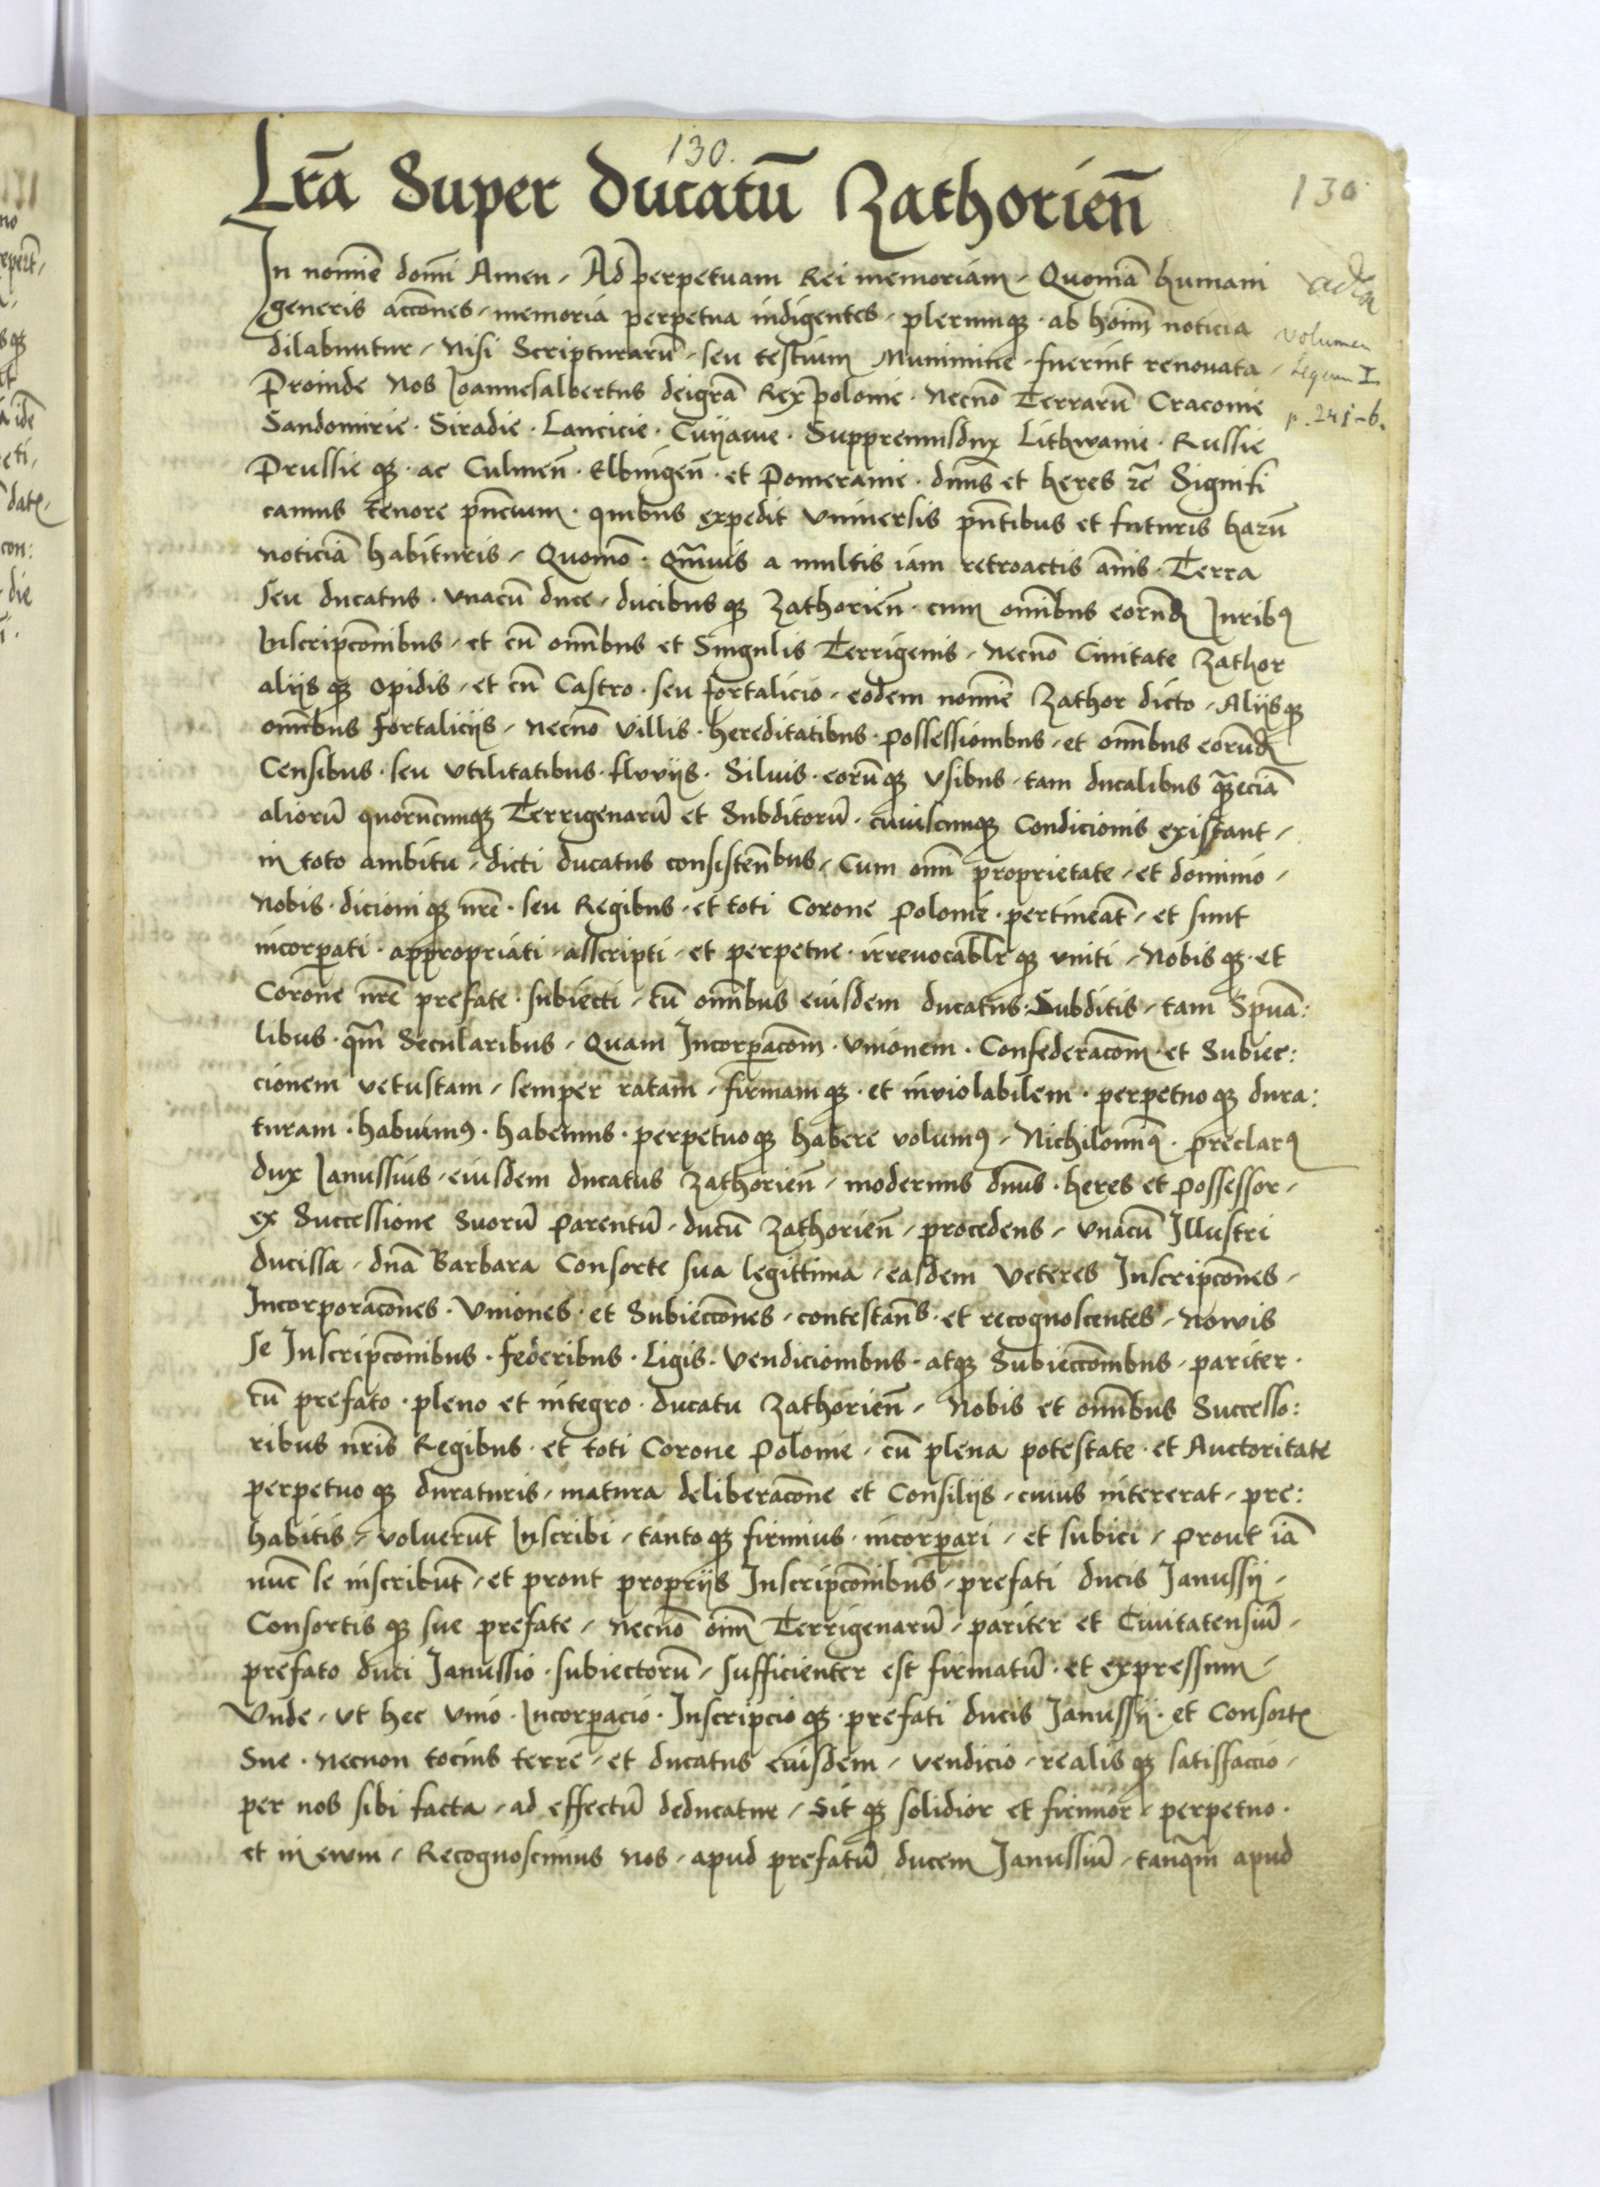 130.
Lrã Super ducatũ Zathorieñ
130
In nomie domi Amen / Ad perpetuam Rei memoriam / Quoniã humani
generis acc̃ones / memoria perpetua indigentes / plerumqꝫ · ab hoim̃ noticia
dilabuntur / Nisi Scripturarũ / seu testium Munimine · fuerint renouata /
volumen
Legum I
p. 241-6.
Proinde Nos Ioannesalbertus deigrã Rex polonie · Necnõ Terrarũ Cracouie
Sandomirie · Siradie · Lancicie · Cuyauie · Suppremusdux Lithwanie · Russie
Prussie qꝫ · ac Culmeñ · Elbingeñ · et Pomeranie · dnũs et heres rc̃ Signifi
camus tenore pñcium · quibus expedit vniuersis pñtibus et futuris harũ
noticiã habituris / Quomõ · Qm̃uis a multis iam retroactis ãnis · Terra
seu ducatus · vnacũ duce / ducibus qꝫ Zathorieñ · cum omĩbus eorundẽ Iuribꝰ
Inscripcõnibus / et cũ omĩbus et Singulis Terrigenis / Necnõ Ciuitate Zathor
alijs qꝫ opidis / et cũ Castro · seu fortalicio / eodem nomie Zathor dicto / Alijsqꝫ
omĩbus fortalicijs / Necnõ villis · hereditatibus · possessionibus / et omĩbus eorundẽ
Censibus · seu vtilitatibus · fluvijs · Siluis · eorũqꝫ vsibus · tam ducalibus qm̃eciã
aliorũ quorũcunqꝫ Terrigenarũ et Subditorũ · cuiuscunqꝫ Condicionis existant /
in toto ambitu / dicti ducatus consisteñbus / Cum omĩ proprietate / et dominio /
Nobis · dicioni qꝫ nrẽ · seu Regibus / et toti Corone polonie · pertineãt / et sunt
incorꝑati · appropriati · asscripti / et perpetue · irreuocablr̃ qꝫ vniti / Nobis qꝫ · et
Corone nrẽ prefate · subiecti / cũ omĩbus eiusdem ducatus: Subditis / tam Spuã:
libus · qm̃ Secularibus / Quam Incorꝑacõm · vnionem · Confederacõm · et Subiec:
cionem vetustam / semper ratam / firmam qꝫ · et inviolabilem · perpetuo qꝫ dura:
turam · habuimꝰ · habemus · perpetuoqꝫ habere volumꝰ / Nichilominꝰ · preclarꝰ
dux Ianussius / eiusdem ducatus Zathorieñ / modernus dnũs · heres et possessor /
ex Successione Suorũ Parentũ / ducũ Zathorieñ / procedens / vnacũ Illustri
ducissa / dnã Barbara Consorte sua legittima / easdem veteres Inscripcõnes /
Incorporacõnes · Vniones · et Subieccõnes / contestañs · et recognoscentes / Nowis
se Inscripcõnibus · federibus · Ligis · Vendicionibus · atqꝫ Subieccõnibus / pariter ·
cũ prefato · pleno et integro · ducatu Zathorieñ / Nobis et omĩbus Successo:
ribus nrĩs Regibus · et toti Corone polonie / cũ plena potestate · et Auctoritate
perpetuo qꝫ duraturis / matura deliberacõne et Consilijs / cuius intererat / pre:
habitis / voluerũt Inscribi / tanto qꝫ firmius · incorꝑari / et subici / prout iã
nũc se inscribũt / et prout proprijs Inscripcõnibus / prefati ducis Ianussij /
Consortis qꝫ sue prefate / Necnõ oim̃ Terrigenarũ / pariter et Ciuitatensiũ /
prefato duci Ianussio · subiectorũ / sufficienter est firmatũ · et expressum /
Vnde / vt hec vnio · Incorꝑacio · Inscripcio qꝫ · prefati ducis Ianussij · et Consortꝭ
Sue · Necnon tocius terre / et ducatus eiusdem / vendicio / realis qꝫ satisfaccio /
per nos sibi facta / ad effectũ deducatur / Sit qꝫ solidior et firmior / perpetuo ·
et in ewm / Recognoscimus nos / apud prefatũ ducem Ianussiũ / tanqm̃ apud